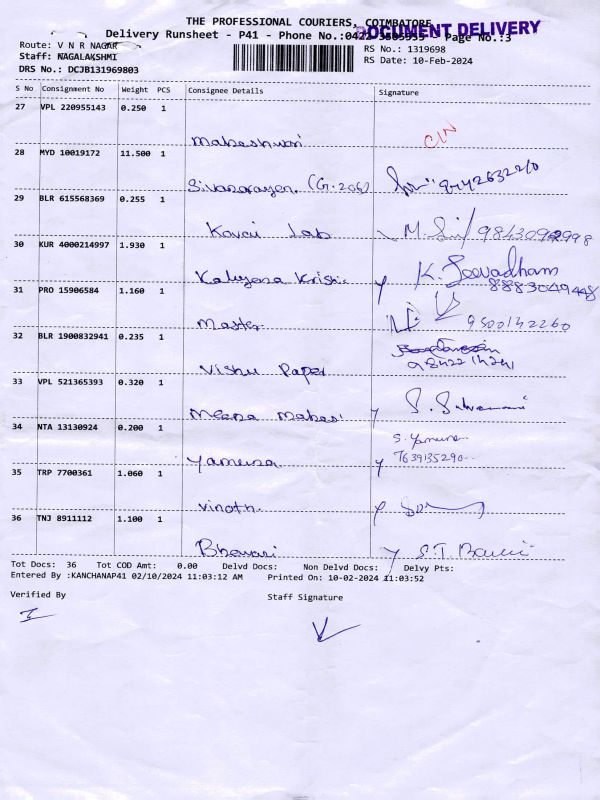 THE PROFESSIONAL COURIERS, COIMBATORE
DOCUMENT DELIVERY
Delivery Runsheet - P41 - Phone No.:0422 Page No.:3
Route: V N R NAGAR
RS No.: 1319698
Staff: NAGALAKSHMI
RS Date: 10-Feb-2024
DRS No.: DCJB131969803
S No Consignment No Weight PCS Consignee Details Signature
27 VPL 220955143 0.250 1
Maheshwari
28 MYD 10019172 11.500 1
Sivanarayan (G.206) 9442632210
29 BLR 615568369 0.255 1
Kovai Lab
30 KUR 4000214997 1.930 1
Kalyana Krishi K. Jeevadham
8883049448
31 PRO 15906584 1.160 1
Master 9500142260
32 BLR 1900832941 0.235 1
Vishu Paper
33 VPL 521365393 0.320 1
Meena Mahesi
34 NTA 13130924 0.200 1
S. Yamuna
Yamuna 7639135290
35 TRP 7700361 1.060 1
Vinoth
36 TNJ 8911112 1.100 1
Bhavani
Tot Docs: 36 Tot COD Amt: 0.00 Delvd Docs: Non Delvd Docs: Delvy Pts:
Entered By :KANCHANAP41 02/10/2024 11:03:12 AM Printed On: 10-02-2024 11:03:52
Verified By
Staff Signature